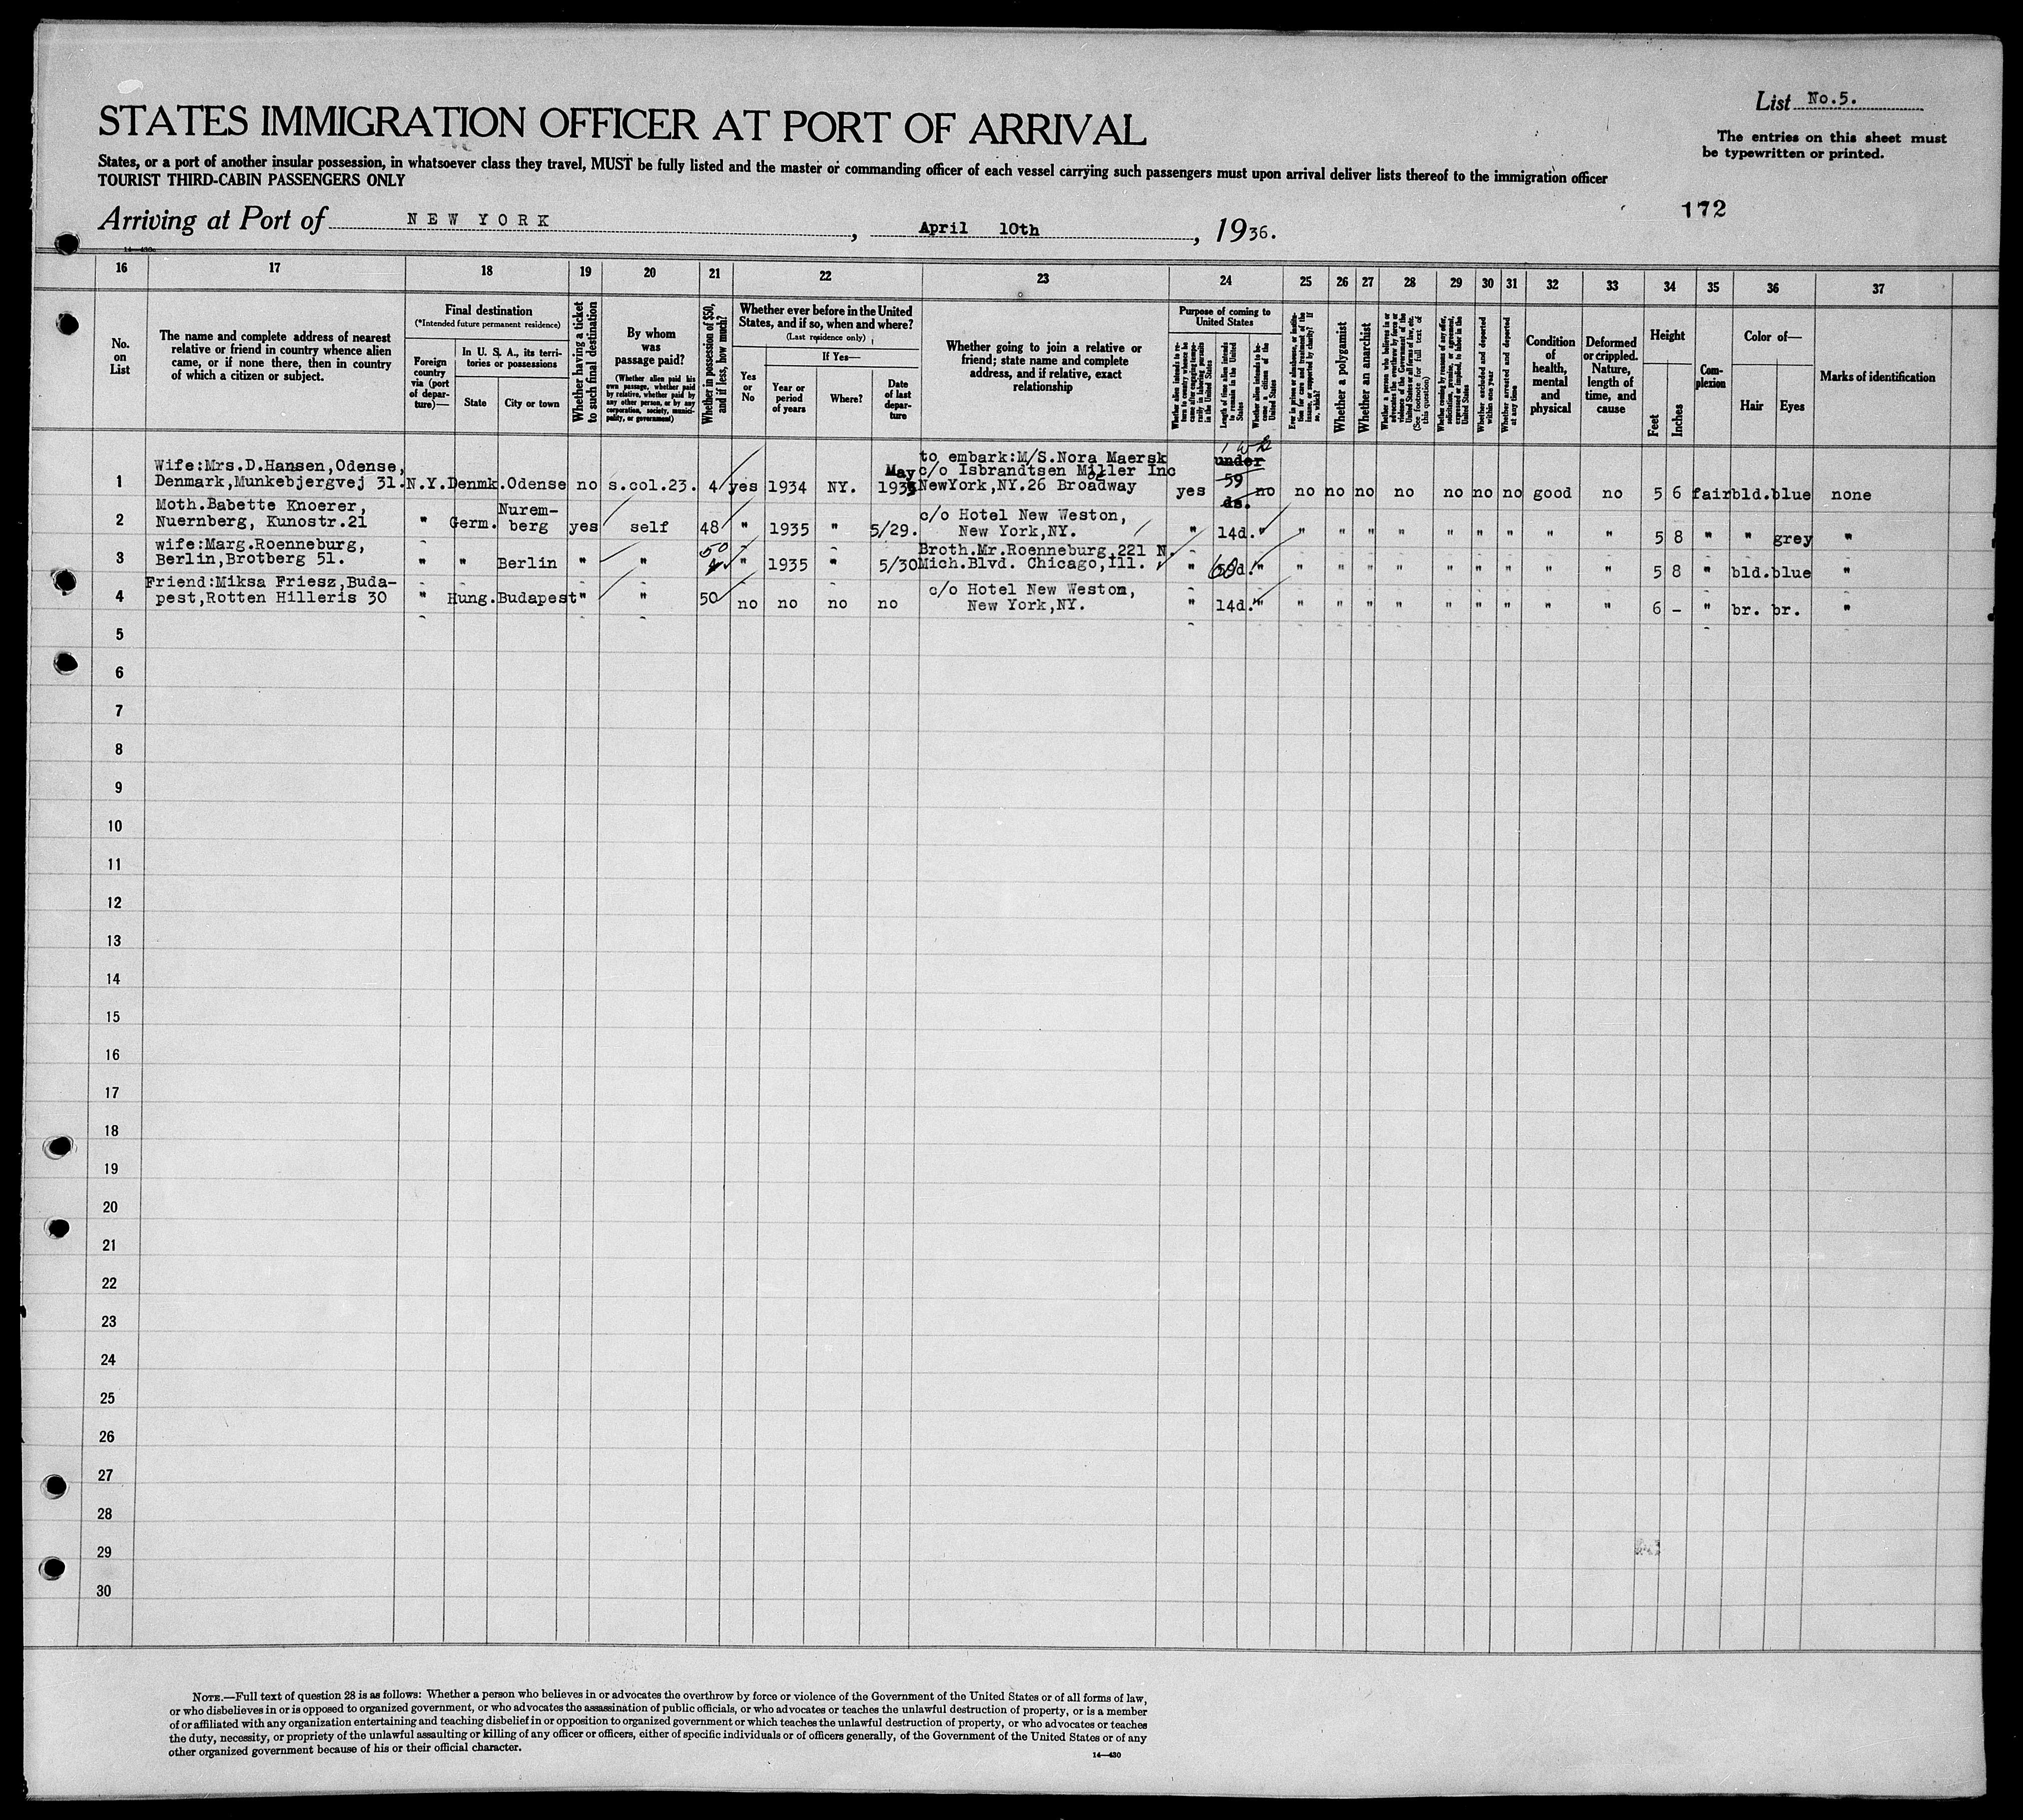 List No.5.
STATES IMMIGRATION OFFICER AT PORT OF ARRIVAL
The entries on this sheet must
be typewritten or printed.
States, or a port of another insular possession, in whatsoever class they travel, MUST be fully listed and the master or commanding officer of each vessel carrying such passengers must upon arrival deliver lists thereof to the immigration officer
TOURIST THIRD-CABIN PASSENGERS ONLY
172
Arriving at Port of NEW YORK, April 10th, 1936.
16 17 18 19 20 21 22 23 24 25 26 27 28 29 30 31 32 33 34 35 36 37
No. on List
The name and complete address of nearest
relative or friend in country whence alien
came, or if none there, then in country
of which a citizen or subject.
Final destination
(*Intended future permanent residence)
Foreign country via (port of departure)—
In U. S. A., its territories or possessions
State
City or town
Whether having a ticket to such final destination
By whom was passage paid?
(Whether alien paid his own passage, whether paid by relative, whether paid by any other person, or by any corporation, society, municipality, or government)
Whether in possession of $50, and if less, how much?
Whether ever before in the United States, and if so, when and where?
(Last residence only)
Yes or No
If Yes—
Year or period of years
Where?
Date of last departure
Whether going to join a relative or
friend; state name and complete
address, and if relative, exact
relationship
Purpose of coming to United States
Whether alien intends to return to country whence he came after engaging temporarily in laboring pursuits in the United States
Length of time alien intends to remain in the United States
Whether alien intends to become a citizen of the United States
Ever in prison or almshouse, or institution for care and treatment of the insane, or supported by charity? If so, which?
Whether a polygamist
Whether an anarchist
Whether a person who believes in or advocates the overthrow by force or violence of the Government of the United States or all forms of law, etc. (See footnote for full text of this question)
Whether coming by reason of any offer, solicitation, promise, or agreement, expressed or implied, to labor in the United States
Whether excluded and deported within one year
Whether arrested and deported at any time
Condition of health, mental and physical
Deformed or crippled. Nature, length of time, and cause
Height
Feet
Inches
Complexion
Color of—
Hair
Eyes
Marks of identification
1 Wife:Mrs.D.Hansen,Odense,
Denmark,Munkebjergvej 31. N.Y. Denmk. Odense no s.col.23. 4 yes 1934 NY. May 1935
to embark:M/S.Nora Maersk
c/o Isbrandtsen Møller Inc
NewYork,NY.26 Broadway yes 1 wk under 59 ds. no no no no no no no no good no 5 6 fair bld. blue none
2 Moth.Babette Knoerer,
Nuernberg, Kunostr.21 " Germ. Nuremberg yes self 48 " 1935 " 5/29.
c/o Hotel New Weston,
New York,NY. " 14d. " " " " " " " " " " 5 8 " " grey "
3 wife:Marg.Roenneburg,
Berlin,Brotberg 51. " " Berlin " " 50 " 1935 " 5/30
Broth.Mr.Roenneburg,221 N.
Mich.Blvd. Chicago,Ill. " 60d. " " " " " " " " " " 5 8 " bld. blue "
4 Friend:Miksa Friesz,Buda-
pest,Rotten Hilleris 30 " Hung. Budapest " " 50 no no no no
c/o Hotel New Weston,
New York,NY. " 14d. " " " " " " " " " " 6 - " br. br. "
5
6
7
8
9
10
11
12
13
14
15
16
17
18
19
20
21
22
23
24
25
26
27
28
29
30
NOTE.—Full text of question 28 is as follows: Whether a person who believes in or advocates the overthrow by force or violence of the Government of the United States or of all forms of law,
or who disbelieves in or is opposed to organized government, or who advocates the assassination of public officials, or who advocates or teaches the unlawful destruction of property, or is a member
of or affiliated with any organization entertaining and teaching disbelief in or opposition to organized government or which teaches the unlawful destruction of property, or who advocates or teaches
the duty, necessity, or propriety of the unlawful assaulting or killing of any officer or officers, either of specific individuals or of officers generally, of the Government of the United States or of any
other organized government because of his or their official character.
14—430